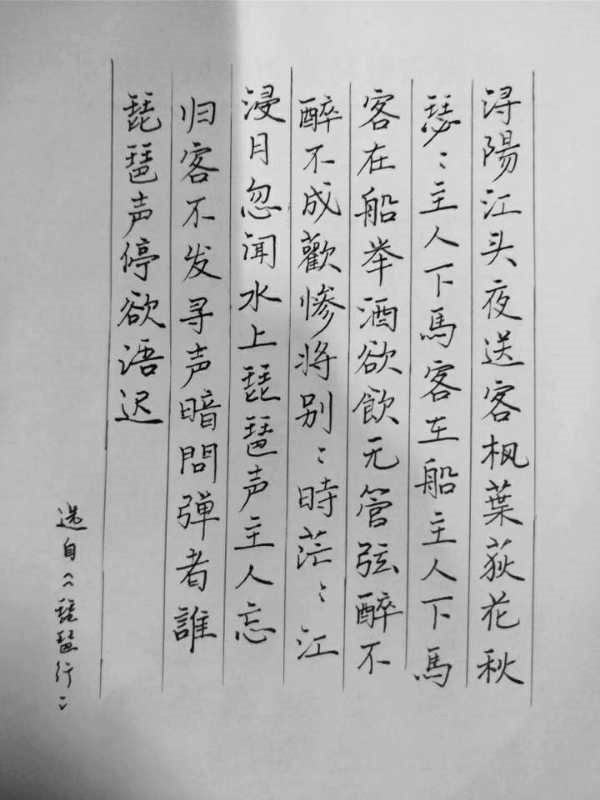 浔陽江头夜送客枫葉荻花秋
瑟〻主人下馬客在船主人下馬
客在船举酒欲飲无管弦醉不
醉不成歡惨将别〻時茫〻江
浸月忽闻水上琵琶声主人忘
归客不发寻声暗問弹者誰
琵琶声停欲语迟
选自《琵琶行》